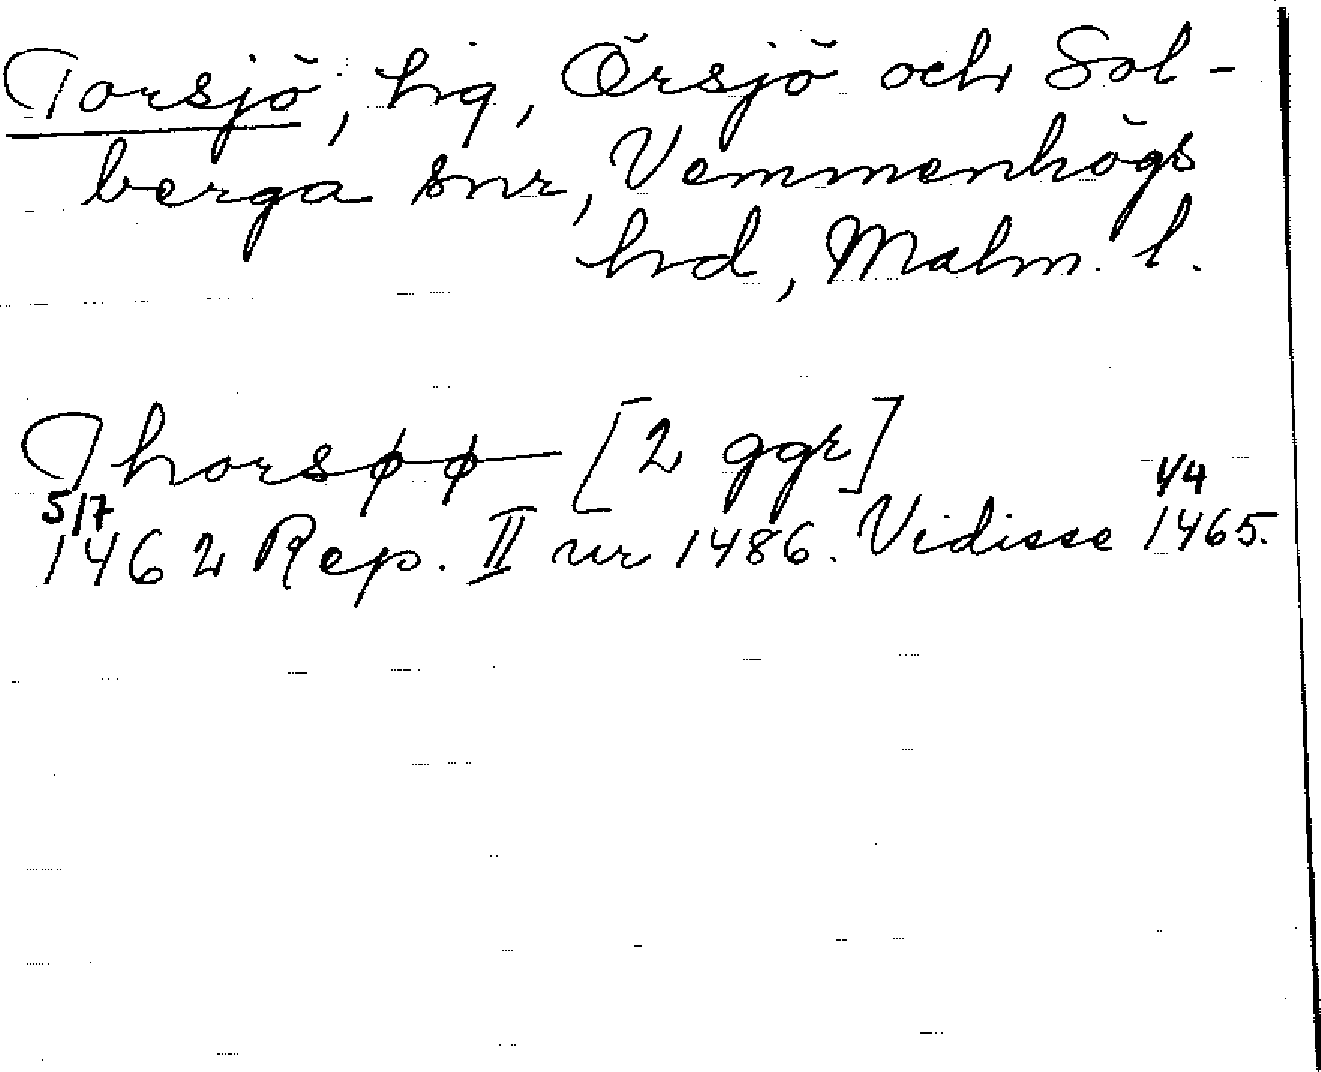 Torsjö, hg, Örsjö och Sol-
berga snr, Vemmenhögs
hd, Malm. l.
Thorsøø [2 ggr]
5/7 1/4
1462 Rep. II nr 1486. Vidisse 1465.